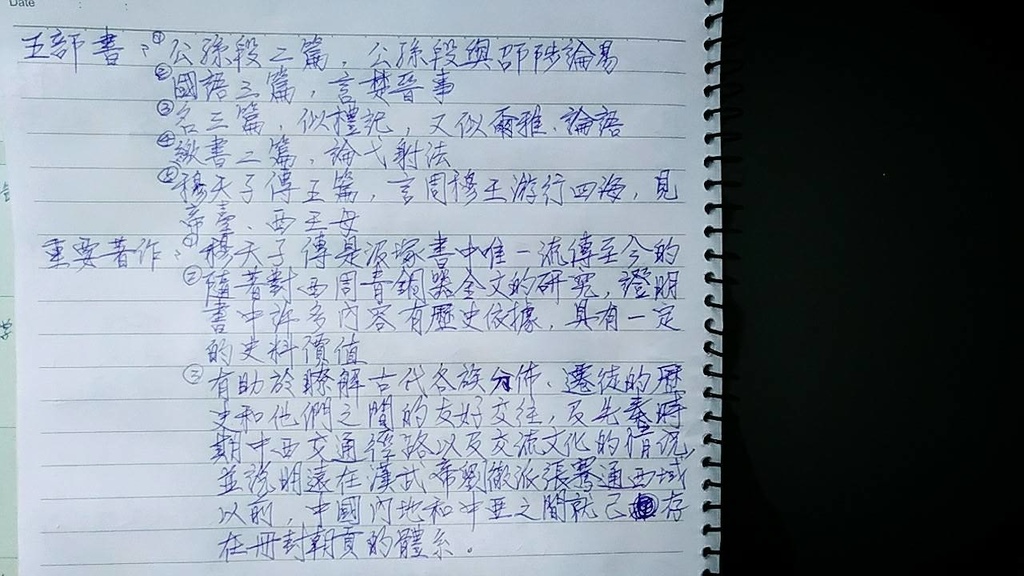 Date
五部書：①公孫段二篇，公孫段與邵陟論易
②國語三篇，言楚晉事
③名三篇，似禮記，又似爾雅、論語
④繳書二篇，論弋射法
⑤穆天子傳五篇，言周穆王游行四海，見
帝臺、西王母
重要著作：①穆天子傳是汲冢書中唯一流傳至今的
②隨著對西周青銅器金文的研究，證明
書中許多內容有歷史依據，具有一定
的史料價值
③有助於瞭解古代各族分佈、遷徒的歷
史和他們之間的友好交往，及先秦時
期中西交通徑路以及交流文化的情況，
並說明遠在漢武帝劉徹派張騫通西域
以前，中國內地和中亞之間就己存
在冊封朝貢的體系。